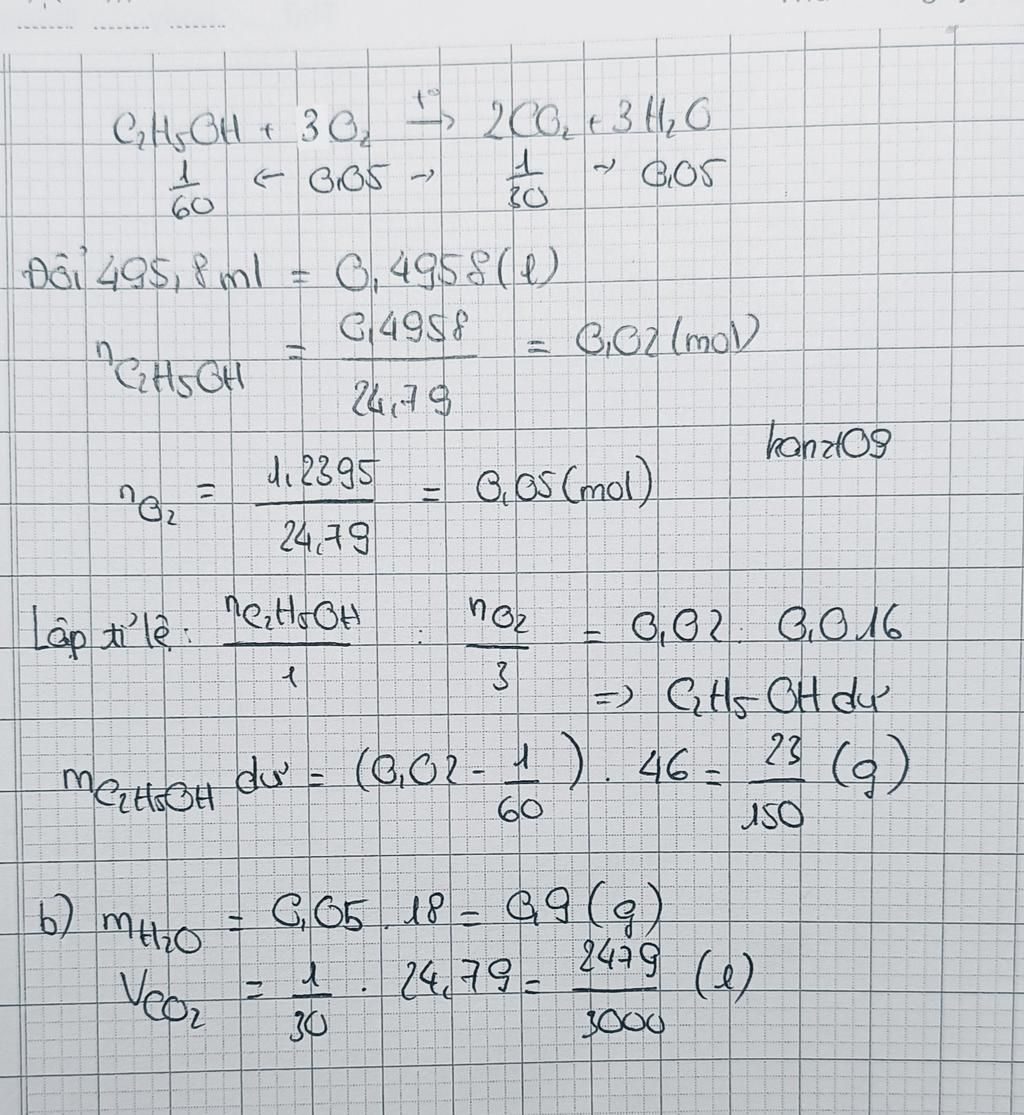 C₂H₅OH + 3O₂ →(t°) 2CO₂ + 3H₂O
1/60 ← 0,05 → 1/30 → 0,05
Đổi 495,8 ml = 0,4958 (l)
nC₂H₅OH = 0,4958/24,79 = 0,02 (mol)
hanz09
nO₂ = 1,2395/24,79 = 0,05 (mol)
Lập tỉ lệ: nC₂H₅OH/1 : nO₂/3 = 0,02 : 0,016
=> C₂H₅OH dư
mC₂H₅OH dư = (0,02 - 1/60) . 46 = 23/150 (g)
b) mH₂O = 0,05 . 18 = 0,9 (g)
VCO₂ = 1/30 . 24,79 = 2479/3000 (l)